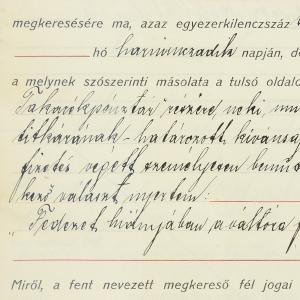 megkeresésére ma, azaz egyezerkilenczszáz
hó harminczadik napján, d
a melynek szószerinti másolata a tulsó oldalo
Takarékpénztár részére, neki, mi
titkárának - határozott kivánsá
fizetés végett személyesen bemu
kező választ nyertem:
"Fedezet hiányjában a váltóra f
Miről, a fent nevezett megkereső fél jogai